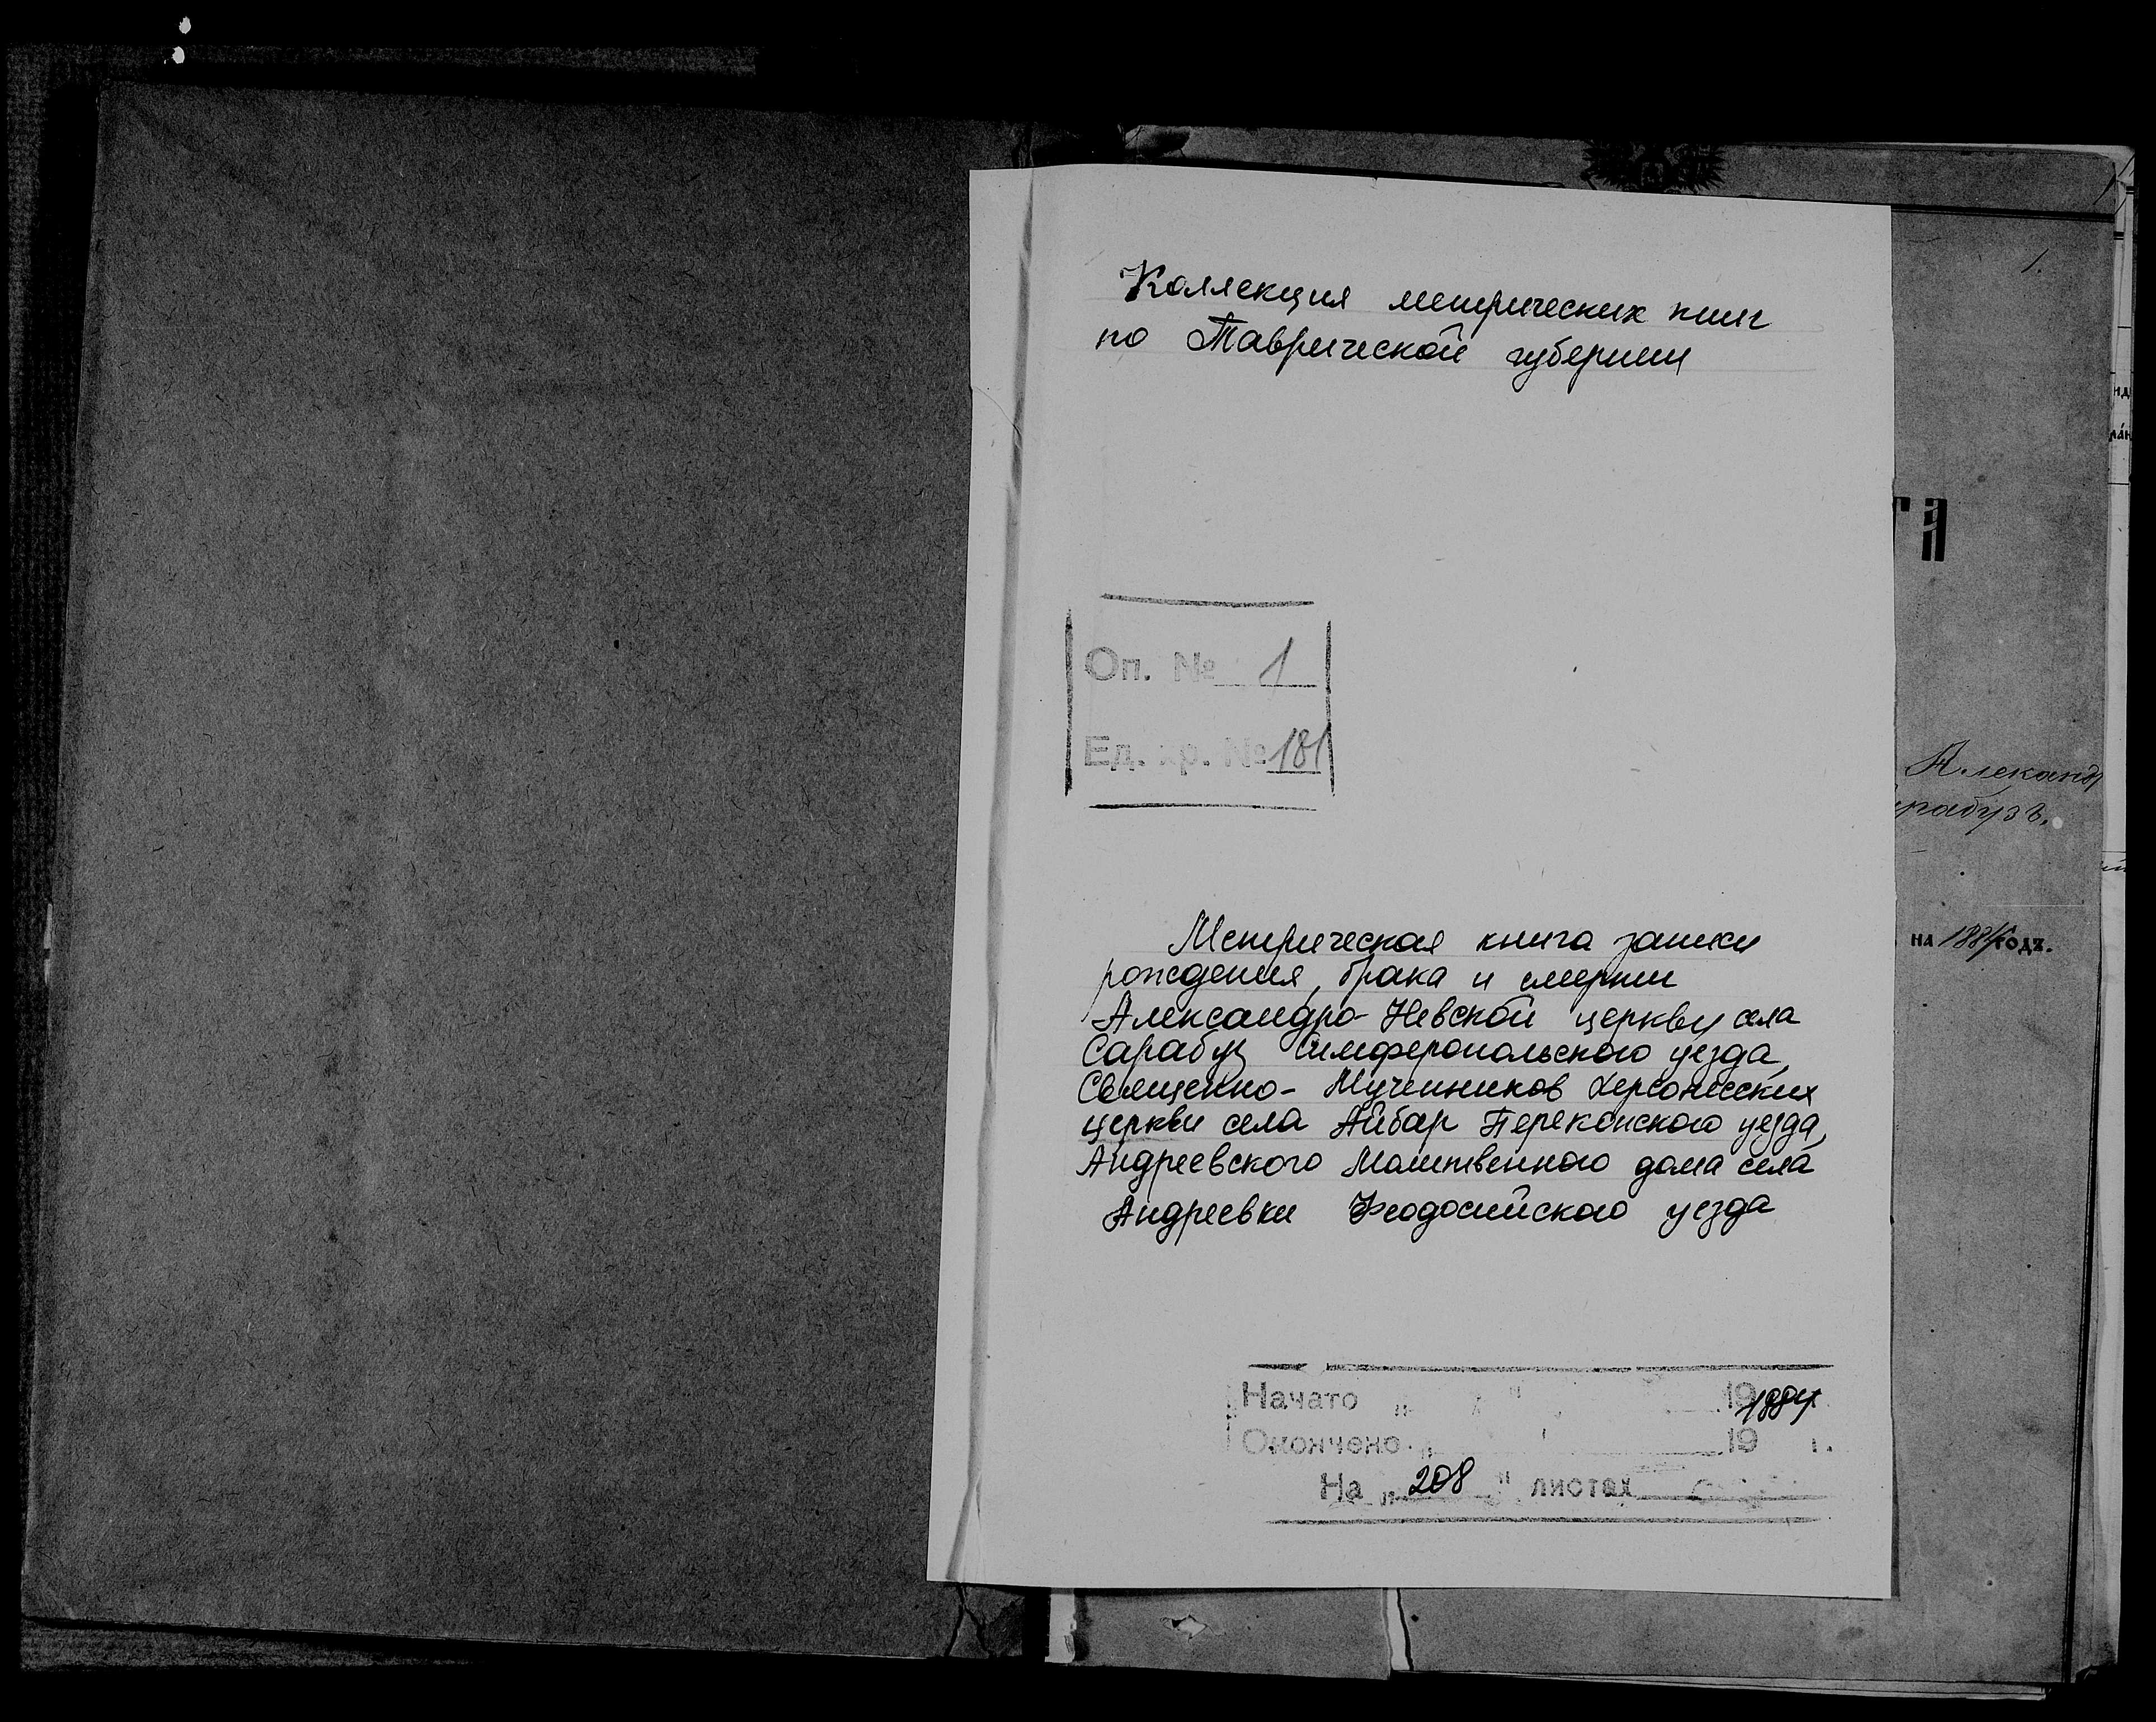 Коллекция метрических книг
по Таврической губернии
Оп. № 1
Ед. хр. № 181
Метрическая книга записи
рождения, брака и смерти
Александро-Невской церкви села
Сарабуз Симферопольского уезда,
Священно-Мучеников Херсонесских
церкви села Айбар Перекопского уезда,
Андреевского Молитвенного дома села
Андреевки Феодосийского уезда
Начато " " 19 1884
Окончено " " 19 г.
На " 208 " листах
1.
Алекандр
рабузъ.
на 1884 годъ.